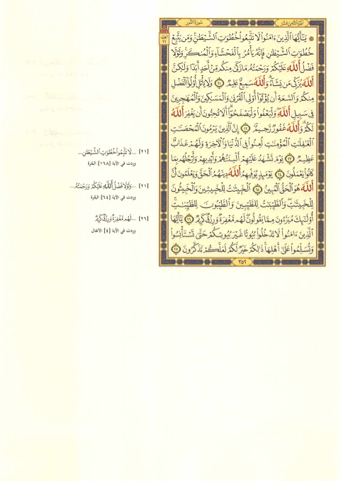 الجزء الثامن عشر
سورة النور
۞ يَٰٓأَيُّهَا ٱلَّذِينَ ءَامَنُوا۟ لَا تَتَّبِعُوا۟ خُطُوَٰتِ ٱلشَّيْطَٰنِ وَمَن يَتَّبِعْ
خُطُوَٰتِ ٱلشَّيْطَٰنِ فَإِنَّهُۥ يَأْمُرُ بِٱلْفَحْشَآءِ وَٱلْمُنكَرِ وَلَوْلَا
فَضْلُ ٱللَّهِ عَلَيْكُمْ وَرَحْمَتُهُۥ مَا زَكَىٰ مِنكُم مِّنْ أَحَدٍ أَبَدًا وَلَٰكِنَّ
ٱللَّهَ يُزَكِّى مَن يَشَآءُ وَٱللَّهُ سَمِيعٌ عَلِيمٌ ٢١ وَلَا يَأْتَلِ أُو۟لُوا۟ ٱلْفَضْلِ
مِنكُمْ وَٱلسَّعَةِ أَن يُؤْتُوٓا۟ أُو۟لِى ٱلْقُرْبَىٰ وَٱلْمَسَٰكِينَ وَٱلْمُهَٰجِرِينَ
فِى سَبِيلِ ٱللَّهِ وَلْيَعْفُوا۟ وَلْيَصْفَحُوٓا۟ أَلَا تُحِبُّونَ أَن يَغْفِرَ ٱللَّهُ
لَكُمْ وَٱللَّهُ غَفُورٌ رَّحِيمٌ ٢٢ إِنَّ ٱلَّذِينَ يَرْمُونَ ٱلْمُحْصَنَٰتِ
ٱلْغَٰفِلَٰتِ ٱلْمُؤْمِنَٰتِ لُعِنُوا۟ فِى ٱلدُّنْيَا وَٱلْءَاخِرَةِ وَلَهُمْ عَذَابٌ
عَظِيمٌ ٢٣ يَوْمَ تَشْهَدُ عَلَيْهِمْ أَلْسِنَتُهُمْ وَأَيْدِيهِمْ وَأَرْجُلُهُم بِمَا
كَانُوا۟ يَعْمَلُونَ ٢٤ يَوْمَئِذٍ يُوَفِّيهِمُ ٱللَّهُ دِينَهُمُ ٱلْحَقَّ وَيَعْلَمُونَ أَنَّ
ٱللَّهَ هُوَ ٱلْحَقُّ ٱلْمُبِينُ ٢٥ ٱلْخَبِيثَٰتُ لِلْخَبِيثِينَ وَٱلْخَبِيثُونَ
لِلْخَبِيثَٰتِ وَٱلطَّيِّبَٰتُ لِلطَّيِّبِينَ وَٱلطَّيِّبُونَ لِلطَّيِّبَٰتِ
أُو۟لَٰٓئِكَ مُبَرَّءُونَ مِمَّا يَقُولُونَ لَهُم مَّغْفِرَةٌ وَرِزْقٌ كَرِيمٌ ٢٦ يَٰٓأَيُّهَا
ٱلَّذِينَ ءَامَنُوا۟ لَا تَدْخُلُوا۟ بُيُوتًا غَيْرَ بُيُوتِكُمْ حَتَّىٰ تَسْتَأْنِسُوا۟
وَتُسَلِّمُوا۟ عَلَىٰٓ أَهْلِهَا ذَٰلِكُمْ خَيْرٌ لَّكُمْ لَعَلَّكُمْ تَذَكَّرُونَ ٢٧
٣٥٢
[٢١] ...لَا تَتَّبِعُوا۟ خُطُوَٰتِ ٱلشَّيْطَٰنِ...
وردت في الآية [١٦٨] البقرة
[٢١] ...وَلَوْلَا فَضْلُ ٱللَّهِ عَلَيْكُمْ وَرَحْمَتُهُۥ...
وردت في الآية [٦٤] البقرة
[٢٦] ...لَهُم مَّغْفِرَةٌ وَرِزْقٌ كَرِيمٌ
وردت في الآية [٤] الأنفال